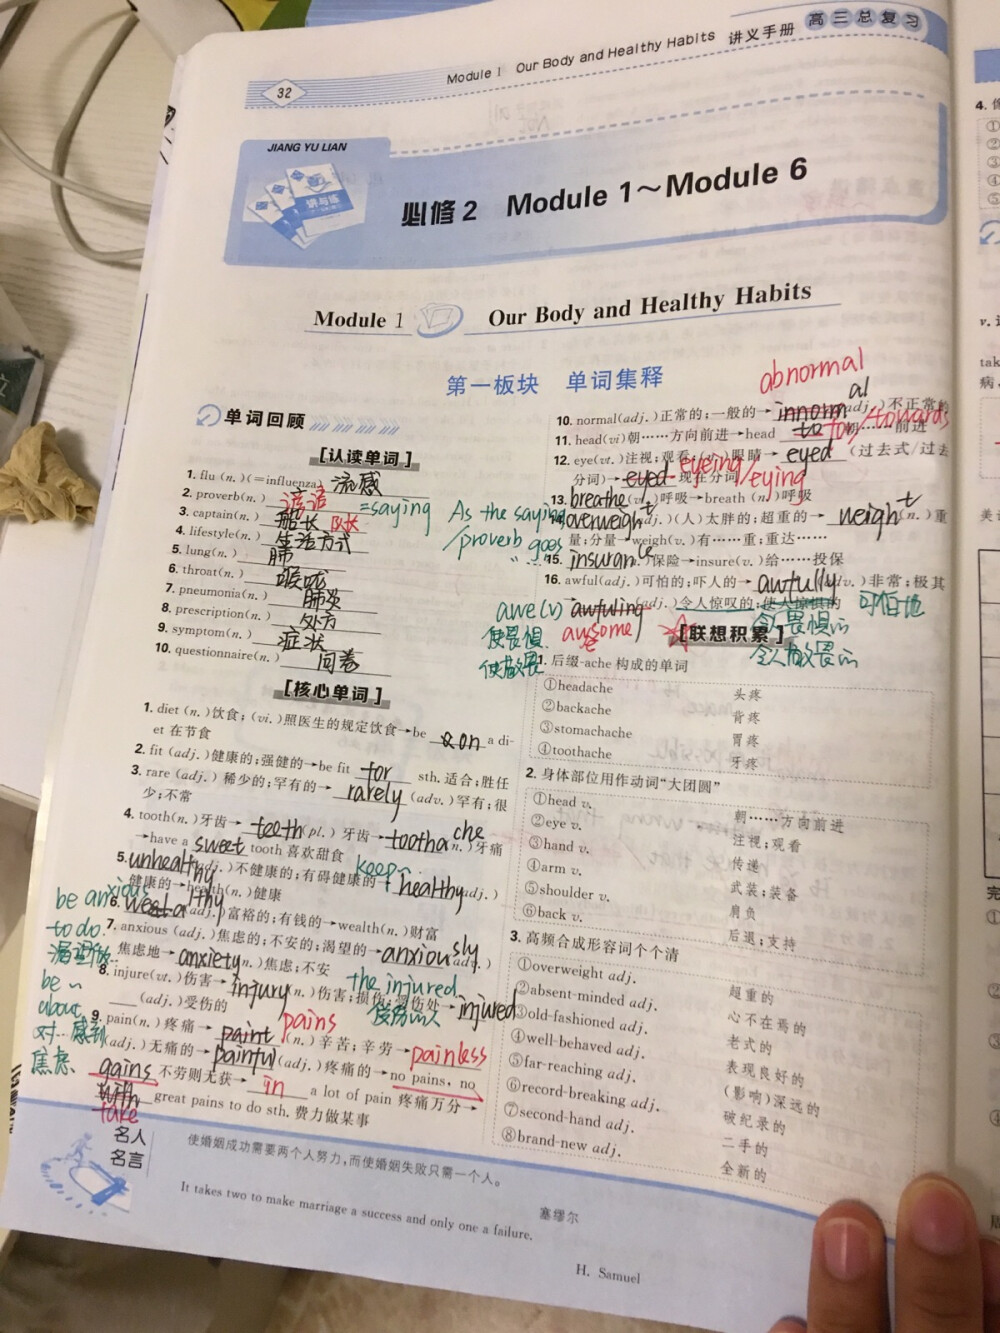 Module 1 Our Body and Healthy Habits 讲义手册 高三总复习
32
JIANG YU LIAN
讲与练
必修2 Module 1～Module 6
Module 1 Our Body and Healthy Habits
第一板块 单词集释
单词回顾
[认读单词]
1. flu (n.)(=influenza) 流感
2. proverb(n.) 谚语 =saying
3. captain(n.) 船长 队长
4. lifestyle(n.) 生活方式
5. lung(n.) 肺
6. throat(n.) 喉咙
7. pneumonia(n.) 肺炎
8. prescription(n.) 处方
9. symptom(n.) 症状
10. questionnaire(n.) 问卷
As the saying
/proverb goes
"...
[核心单词]
1. diet (n.)饮食；(vi.)照医生的规定饮食→be on a di-
et 在节食
2. fit (adj.)健康的；强健的→be fit for sth. 适合；胜任
3. rare (adj.) 稀少的；罕有的→ rarely (adv.) 罕有；很
少；不常
4. tooth(n.)牙齿→ teeth (pl.) 牙齿→ toothache n.)牙痛
→have a sweet tooth 喜欢甜食
keep...
5. unhealthy adj.)不健康的；有碍健康的→ healthy adj.)
健康的→health(n.)健康
6. wealthy (adj.)富裕的；有钱的→wealth(n.)财富
7. anxious (adj.)焦虑的；不安的；渴望的→ anxiously (adv.)
焦虑地→ anxiety n.)焦虑；不安
be anxious
to do.
渴望做..
be ~
about
对..感到
焦虑.
the injured
受伤的人
8. injure(vt.)伤害→ injury (n.)伤害；损伤；受伤处→ injured
(adj.)受伤的
9. pain(n.)疼痛→ paint pains (n.)辛苦；辛劳→ painless
(adj.)无痛的→ painful (adj.)疼痛的→no pains, no
gains 不劳则无获→ in a lot of pain 疼痛万分→
with take great pains to do sth. 费力做某事
abnormal
10. normal(adj.)正常的；一般的→ innormal adj.)不正常的
11. head(vi)朝……方向前进→head to for/towards 朝……前进
12. eye(vt.)注视；观看；(n.)眼睛→ eyed (过去式/过去
分词)→ eyed 现在分词 eyeing/eying
13. breathe (v.)呼吸→breath (n.)呼吸
overweight adj.)(人)太胖的；超重的→ weight (n.)重
量；分量→weigh(v.)有……重；重达……
15. insurance 保险→insure(v.)给……投保
16. awful(adj.)可怕的；吓人的→ awfully adv.)非常；极其
awe(v) awfuling adj.)令人惊叹的；使人惊惧的 可怕地
使畏惧. awsome e 令畏惧的
使敬畏 令人敬畏的
[联想积累]
1. 后缀-ache 构成的单词
①headache 头疼
②backache 背疼
③stomachache 胃疼
④toothache 牙疼
2. 身体部位用作动词“大团圆”
①head v. 朝……方向前进
②eye v. 注视；观看
③hand v. 传递
④arm v. 武装；装备
⑤shoulder v. 肩负
⑥back v. 后退；支持
3. 高频合成形容词个个清
①overweight adj. 超重的
②absent-minded adj. 心不在焉的
③old-fashioned adj. 老式的
④well-behaved adj. 表现良好的
⑤far-reaching adj. (影响)深远的
⑥record-breaking adj. 破纪录的
⑦second-hand adj. 二手的
⑧brand-new adj. 全新的
名人
名言
使婚姻成功需要两个人努力，而使婚姻失败只需一个人。
塞缪尔
It takes two to make marriage a success and only one a failure.
H. Samuel